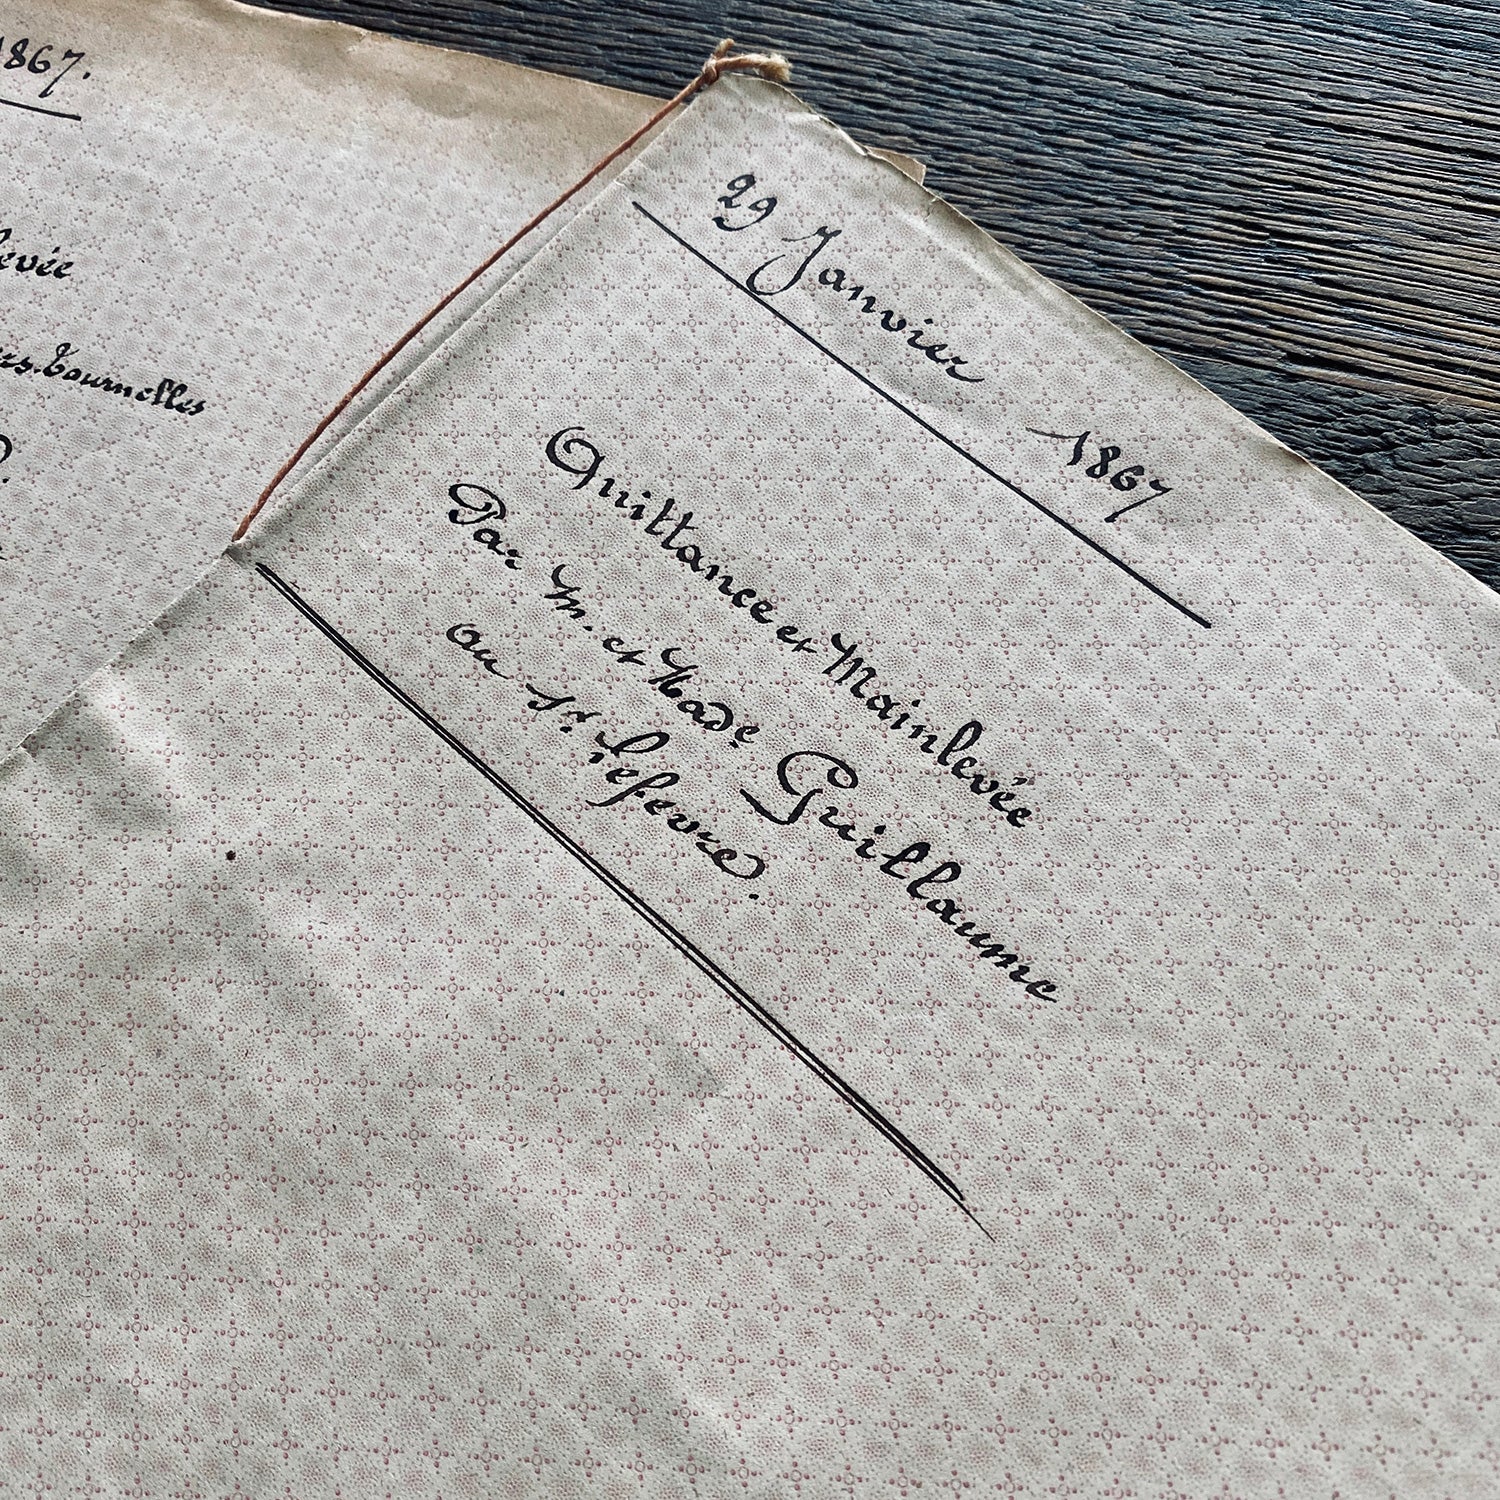 1867.
levée
tournelles
29 Janvier 1867
Quittance et Mainlevée
Par M. et Made Guillaume
au Sr. Lefevre.